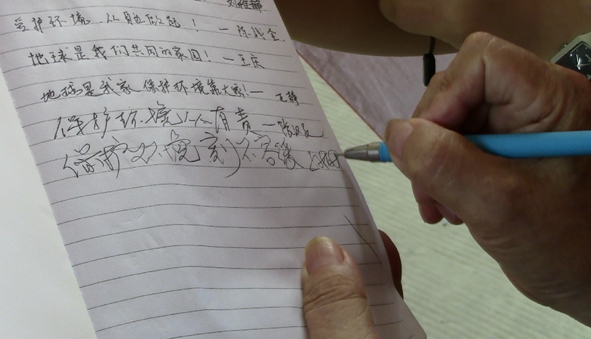 爱护环境、从身边做起！一陈
地球是我们共同的家园！一王兵
地球是我家 保护环境靠大家！一王
保护环境人人有责一张
保护环境刻不容缓